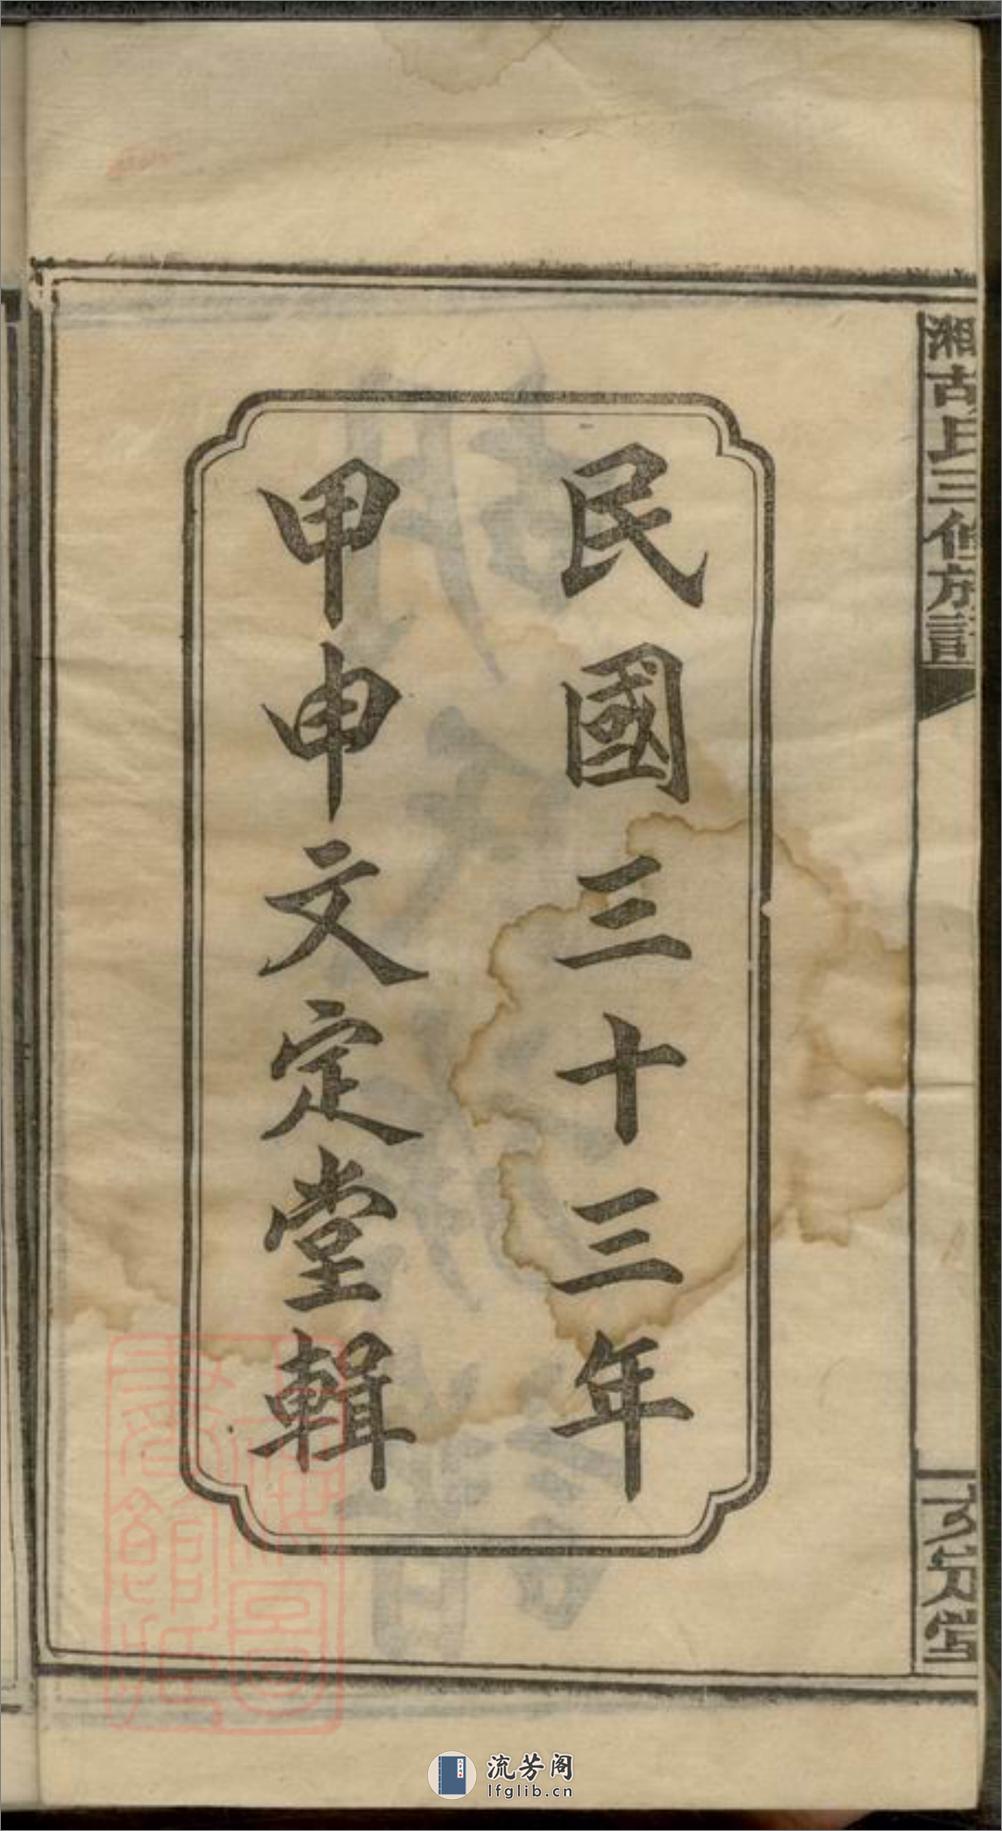 湘胡氏三修族譜
文定堂
民國三十三年
甲申文定堂輯
流芳阁
lfglib.cn